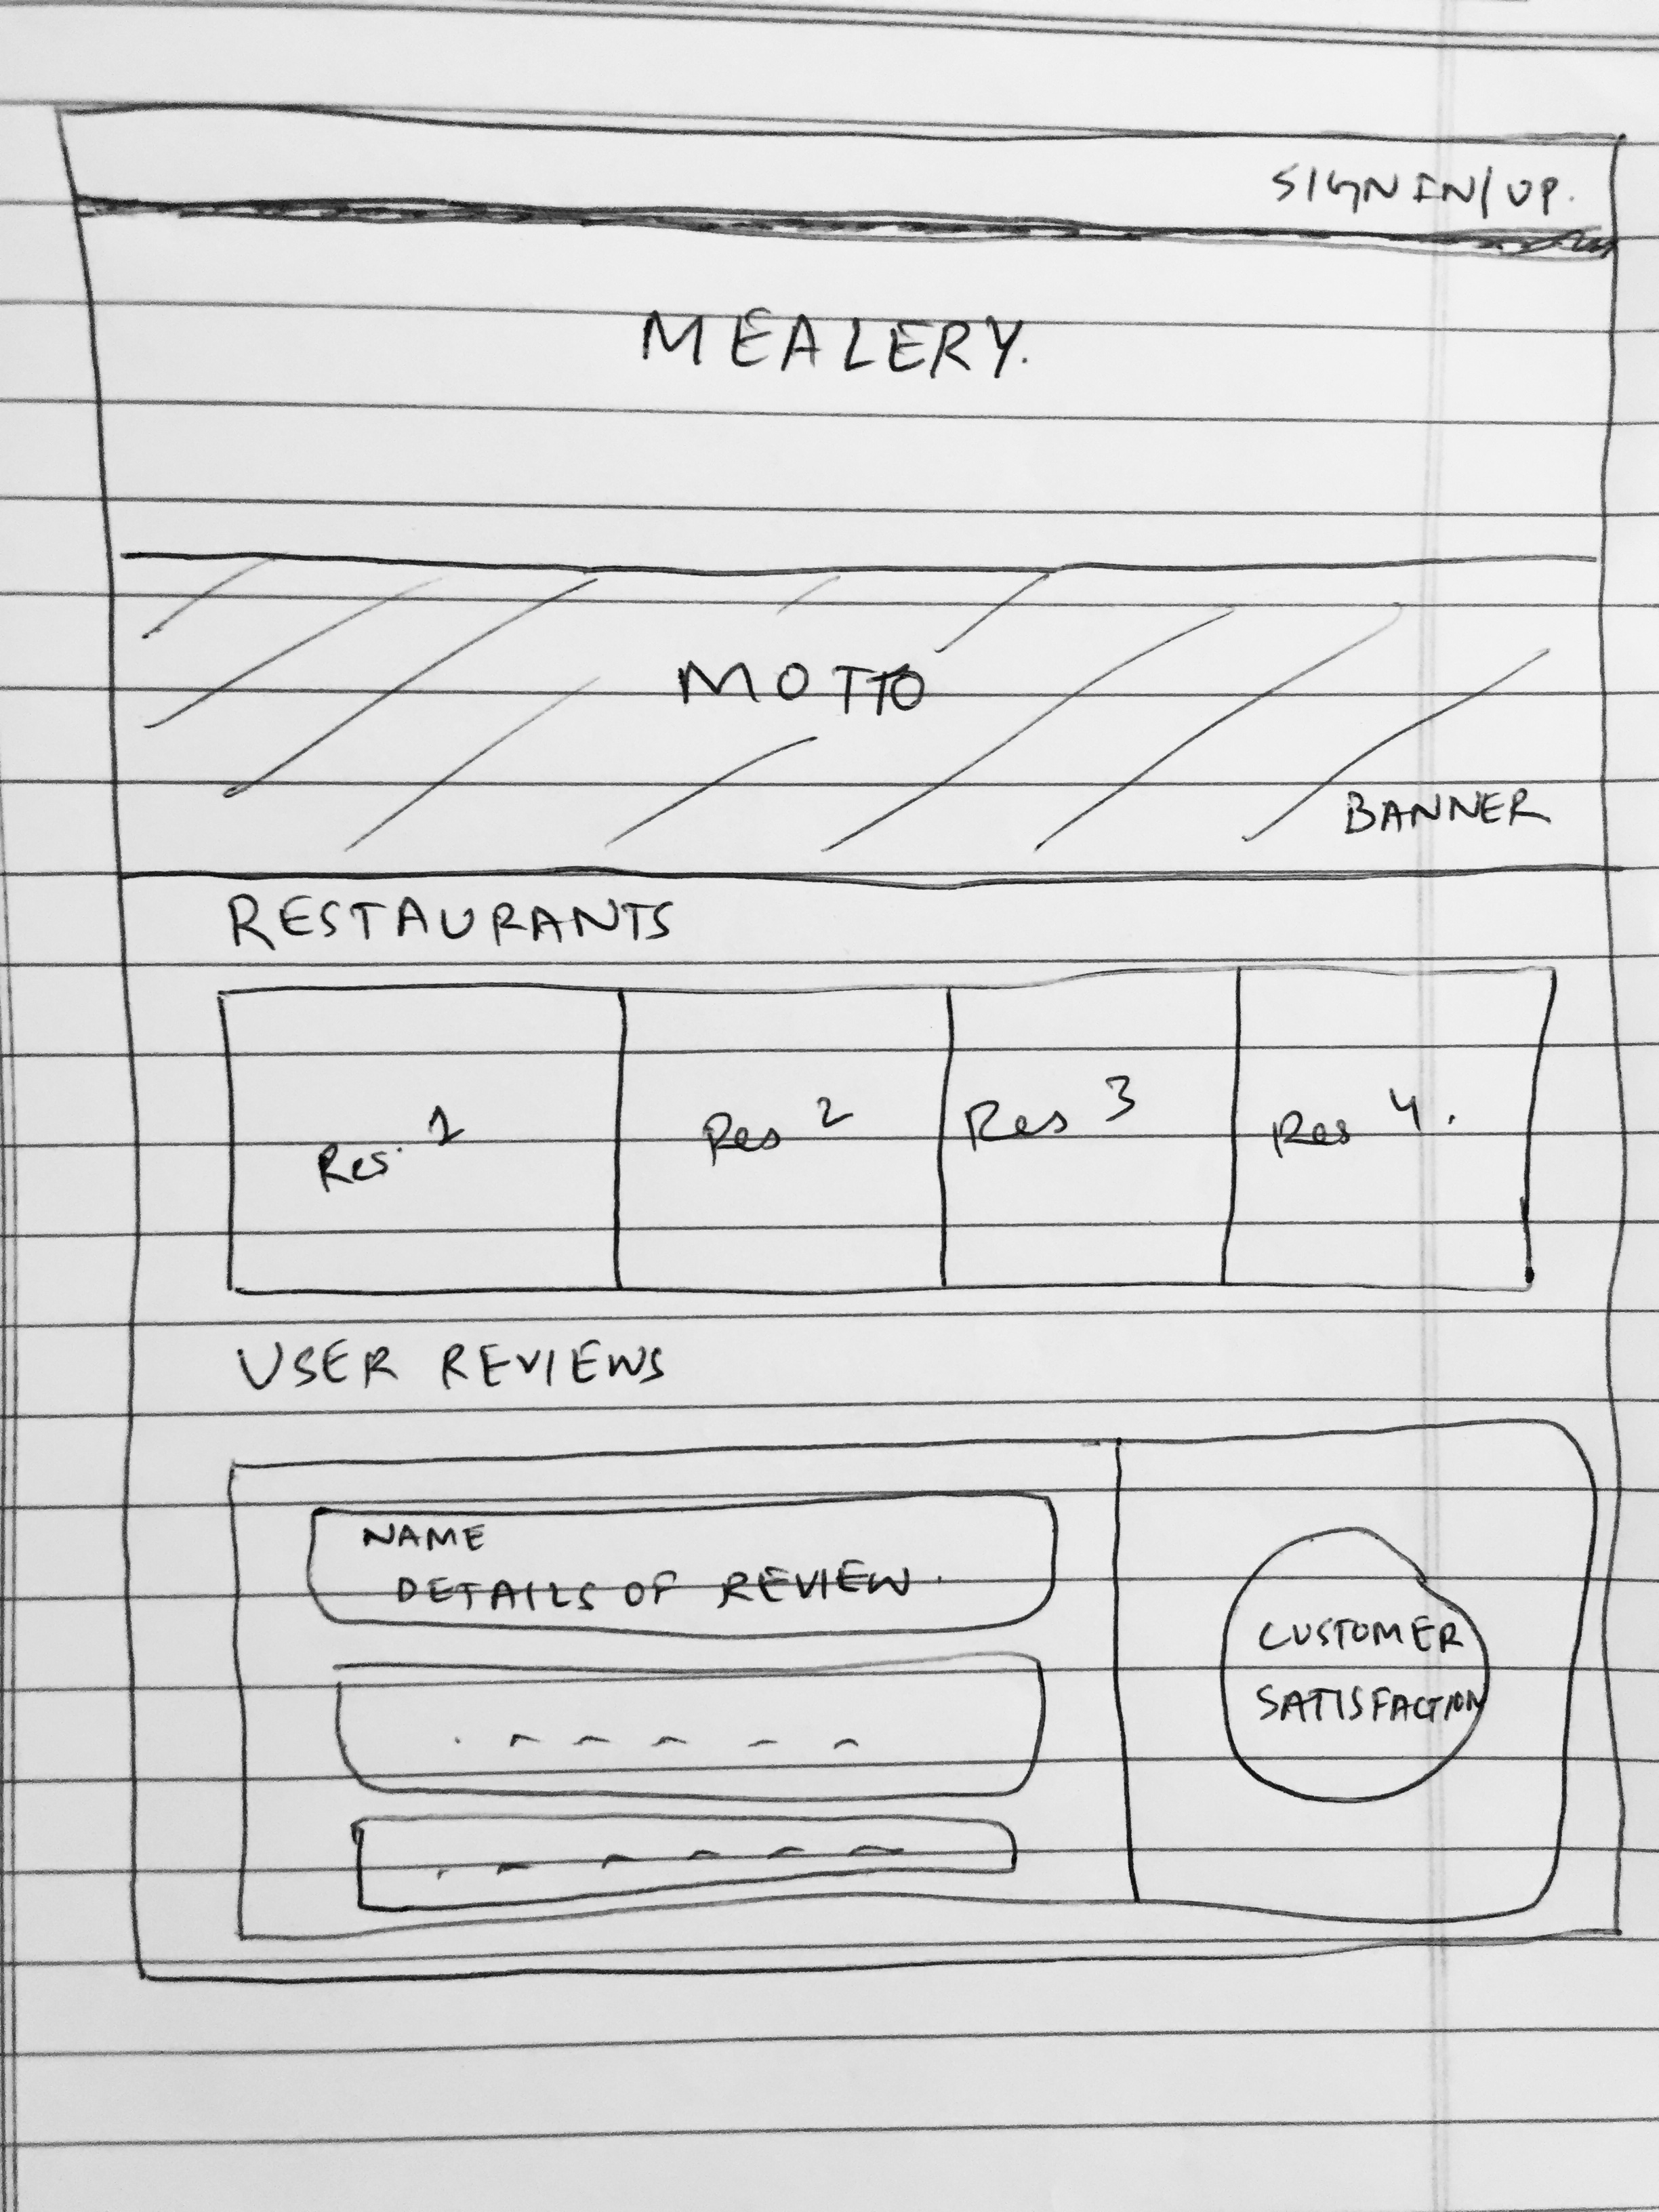 SIGN IN/UP.
MEALERY.
MOTTO
BANNER
RESTAURANTS
Res. 1
Res 2
Res 3
Res 4.
USER REVIEWS
NAME
DETAILS OF REVIEW.
CUSTOMER
SATISFACTION